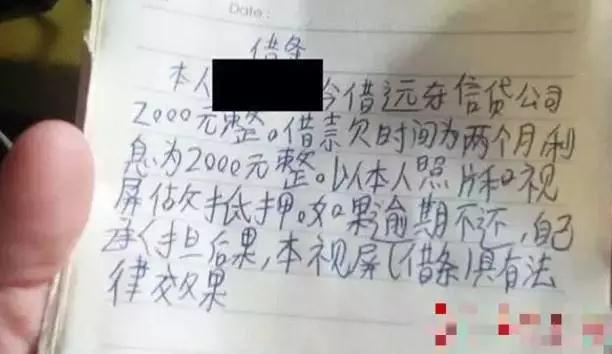 Date:
借条
本人 今借远夺信贷公司
2000元整。借款时间为两个月利
息为2000元整。以本人照片和视
屏做抵押。如果逾期不还,自己
承担后果,本视屏(借条)具有法
律效果